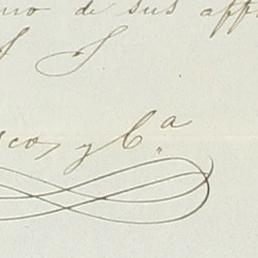 uno de sus aff
S S
scos, y C.a